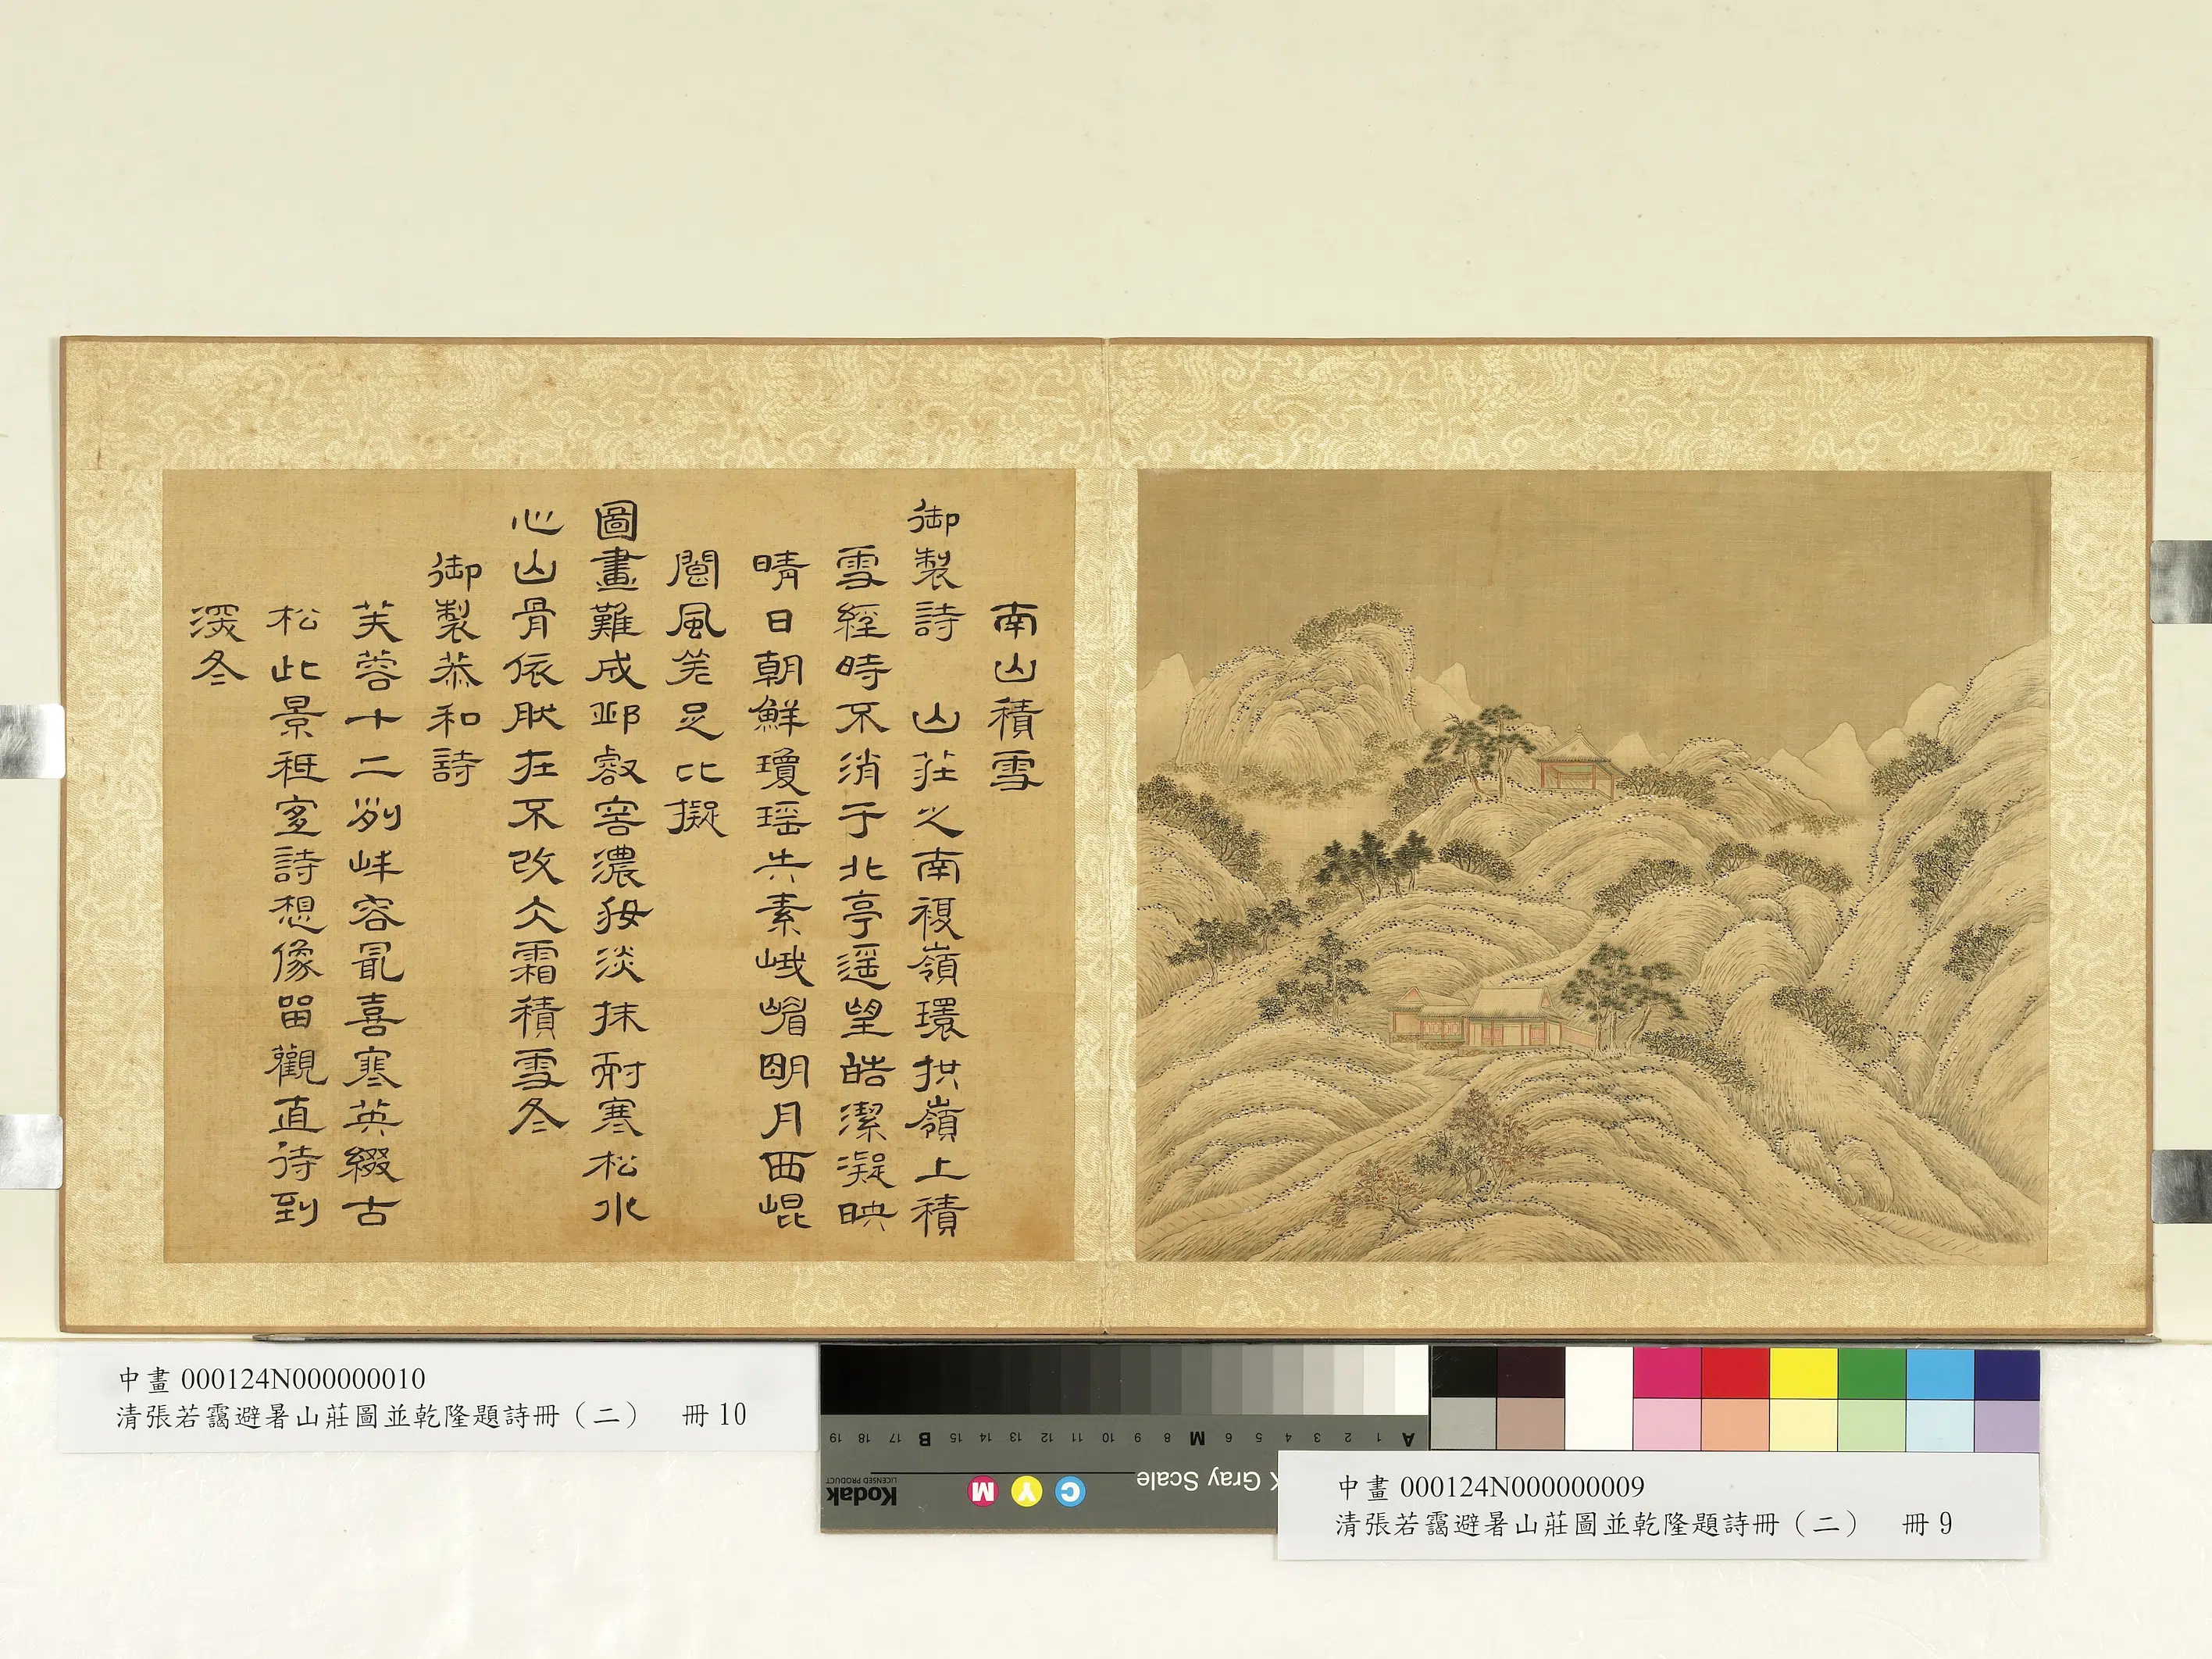 南山積雪
御製詩 山莊之南複嶺環拱嶺上積
雪經時不消于北亭遥望皓潔凝映
晴日朝鮮瓊瑶失素峨嵋明月西崐
閬風差足比擬
圖畫難成邱壑容濃妝淡抹耐寒松水
心山骨依然在不改仌霜積雪冬
御製恭和詩
芙蓉十二列峰容最喜寒英綴古
松此景祗宜詩想像留觀直待到
深冬
中畫 000124N000000010
清張若靄避暑山莊圖並乾隆題詩冊（二） 冊 10
19 18 17 B 15 14 13 12 11 10 9 8 M 6 5 4 3 2 1 A
Kodak
LICENSED PRODUCT
M Y C
Gray Scale
中畫 000124N000000009
清張若靄避暑山莊圖並乾隆題詩冊（二） 冊 9